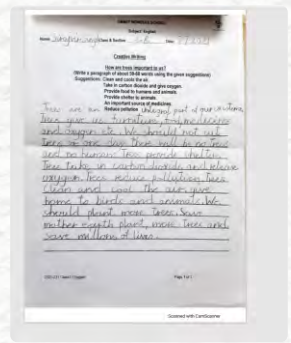 Subject: English
Name Class & Section Date
Creative Writing
How are trees important to us?
(Write a paragraph of about 60-80 words using the given suggestions)
Suggestions: Clean and cools the air.
Take in carbon dioxide and give oxygen.
Provide food to humans and animals.
Provide shelter to animals.
An important source of medicines.
Reduce pollution
Trees are an integral part of our
Trees give us furniture, food, medecines
and oxygen etc. We should not cut
trees or one day there will be no tree
and no humans. Trees provide shelter.
Trees take in carbon dioxide and release
oxygen. Trees reduce pollution. Trees
clean and cool the air, give
home to birds and animals. We
should plant more trees. Save
mother earth plant more trees and
save millions of lives.
Page 1 of 1
Scanned with CamScanner